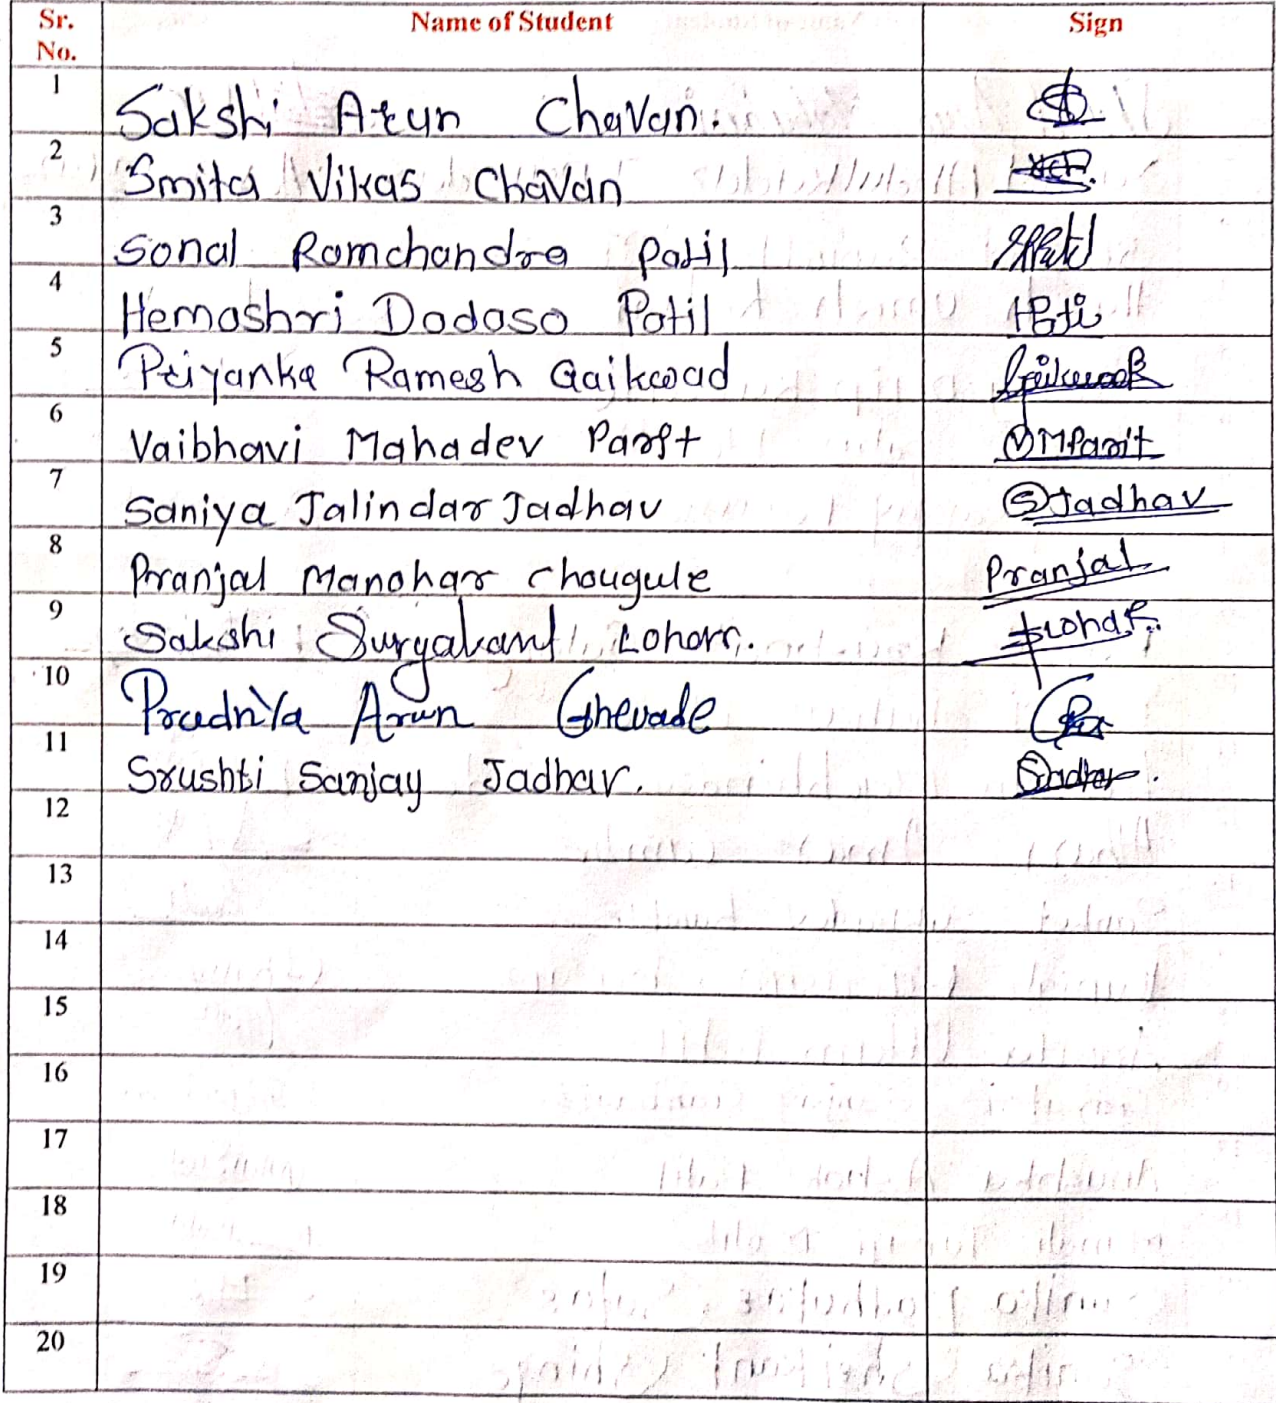 Sr. No. Name of Student Sign
1 Sakshi Arun Chavan.
2 Smita Vikas Chavan
3 Sonal Ramchandra Patil
4 Hemashri Dadaso Patil HPati
5 Priyanka Ramesh Gaikwad
6 Vaibhavi Mahadev Parit VMParit
7 Saniya Jalindar Jadhav SJadhav
8 Pranjal Manohar Chougule Pranjal
9 Sakshi Suryakant Lohar. Slohar.
10 Pradnya Arun Ghevade
11 Srushti Sanjay Jadhav.
12
13
14
15
16
17
18
19
20